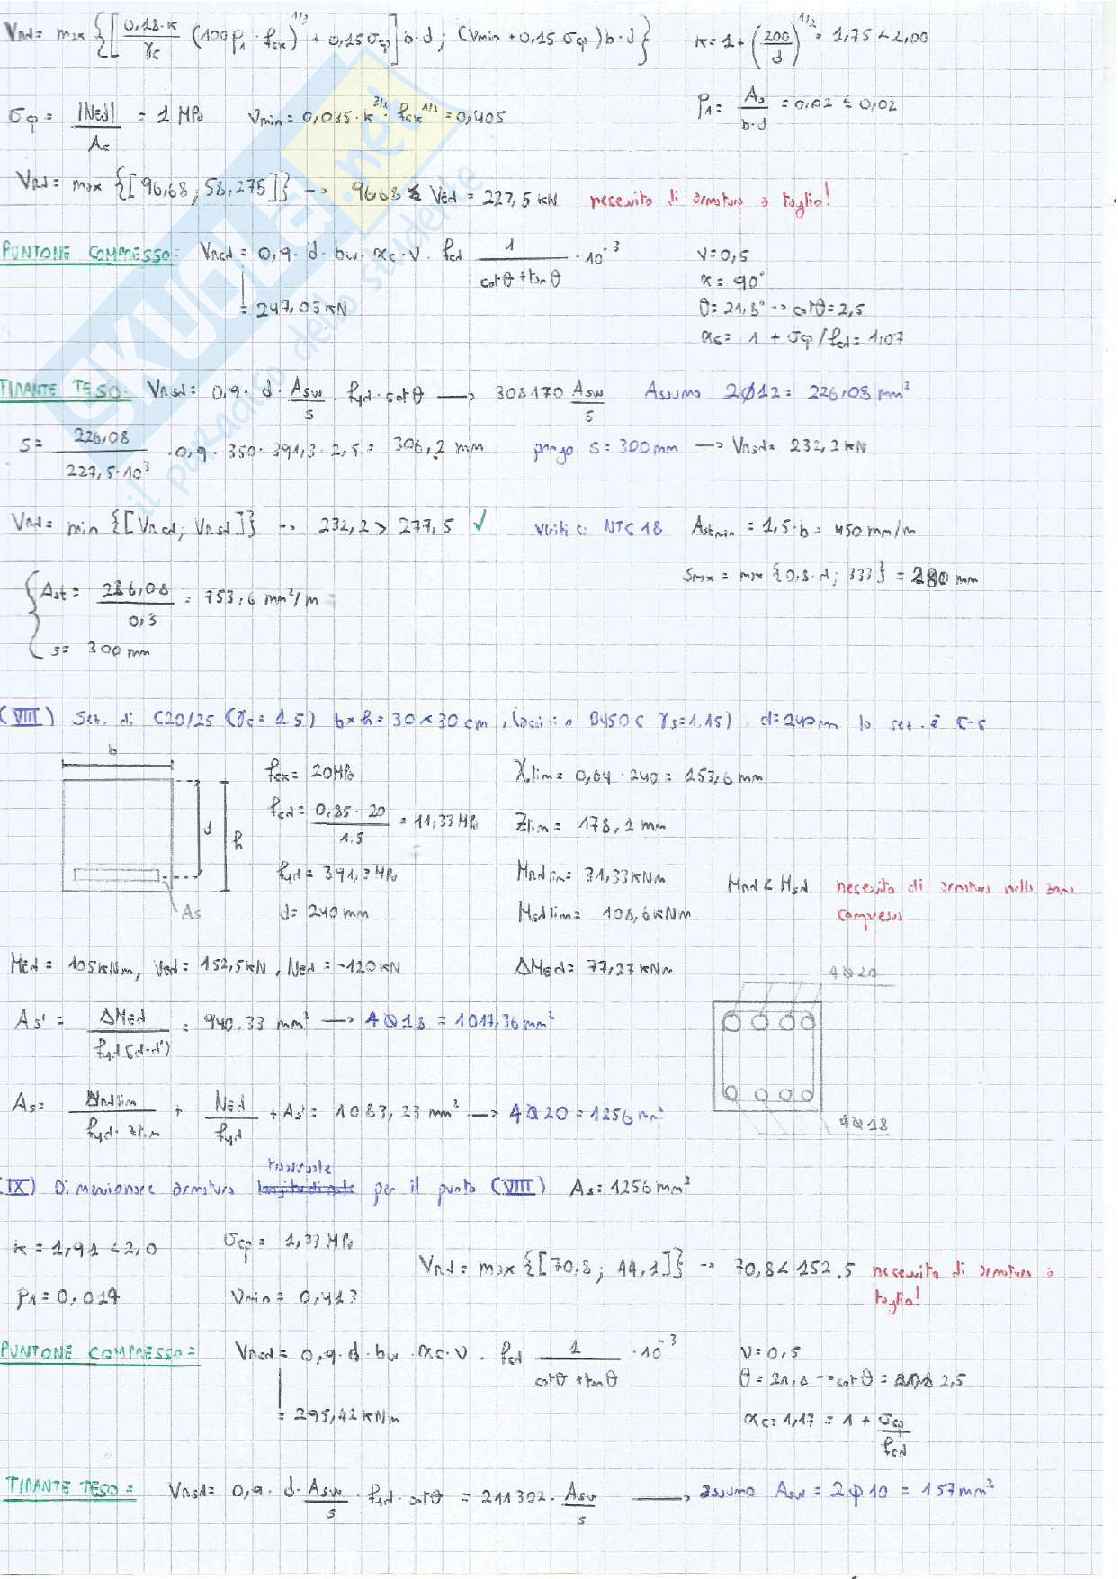 V_Rd = max {[ 0,18·k / γc (100 ρ1 · fck)^1/3 + 0,15 σcp ] b·d ; (vmin + 0,15 σcp) b·d }   k = 1 + (200 / d)^1/2 = 1,75 < 2,00
σcp = |NEd| / Ac = 1 MPa   vmin = 0,015 · k^3/2 · fck^1/2 = 0,405   ρ1 = As / b·d = 0,02 ≤ 0,02
VRd = max {[96,68 ; 58,275]} → 96,68 ≤ VEd = 227,5 kN   necessito di armatura a taglio!
PUNTONE COMPRESSO: VRcd = 0,9 · d · bw · αc · ν · fcd 1 / cotθ + tanθ · 10^-3   ν = 0,5
= 247,05 kN   α = 90°
θ = 21,8° → cotθ = 2,5
αc = 1 + σcp / fcd = 1,07
TIRANTE TESO: VRsd = 0,9 · d · Asw / s fyd · cotθ → 308170 Asw / s   Assumo 2Φ12 = 226,08 mm²
s = 226,08 / 227,5·10³ · 0,9 · 350 · 391,3 · 2,5 = 306,2 mm   pongo s = 300 mm → VRsd = 232,2 kN
VRd = min {[VRcd ; VRsd]} → 232,2 > 277,5 ✓   NTC 18   Astmin = 1,5 · b = 450 mm/m
smax = max {0,8 · d ; 333} = 280 mm
Ast = 226,08 / 0,3 = 753,6 mm²/m
s = 300 mm
(VIII) Sez. di C20/25 (γc = 1.5) b×h = 30×30 cm, (acciaio B450C γs = 1,15). d = 240 mm la sez. è
b
d
h
As
fck = 20 MPa   Xlim = 0,64 · 240 = 153,6 mm
fcd = 0,85 · 20 / 1.5 = 11,33 MPa   Zlim = 178,2 mm
fyd = 391,3 MPa   MRd lim = 31,33 kNm   MRd < MSd necessito di armatura nella zona compressa
d = 240 mm   MSd lim = 108,6 kNm
MEd = 105 kNm, VEd = 152,5 kN, NEd = -120 kN   ΔMEd = 77,27 kNm
4Φ20
As' = ΔMEd / fyd (d-d') = 940.33 mm² → 4Φ18 = 1017,36 mm²
As = MRd lim / fyd · zlim + NEd / fyd + As' = 1083,23 mm² → 4Φ20 = 1256 mm²
4Φ18
trasversale
(IX) Dimensionare armatura longitudinale per il punto (VIII) As = 1256 mm²
k = 1,91 < 2,0   σcp = 1,33 MPa   VRd = max {[70,8 ; 44,1]} → 70,8 < 152.5 necessito di armatura a taglio!
ρ1 = 0,017   vmin = 0,413
PUNTONE COMPRESSO = VRcd = 0,9 · d · bw · αc · ν · fcd 1 / cotθ + tanθ · 10^-3   ν = 0,5
θ = 21,8 → cotθ = 2,5
= 295,42 kNm   αc = 1,17 = 1 + σcp / fcd
TIRANTE TESO = VRsd = 0,9 · d · Asw / s · fyd · cotθ = 211302 · Asw / s → assumo Asw = 2Φ10 = 157 mm²
SKUOLA.net
il paradiso dello studente